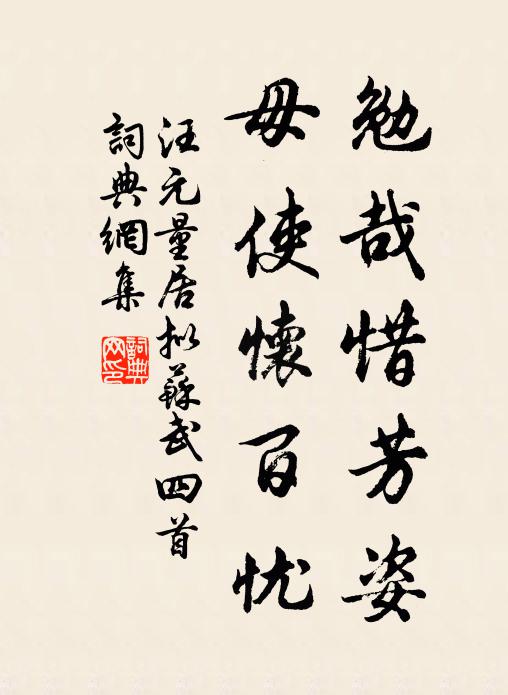 勉哉惜芳姿
毋使懷百忧
汪元量居拟蘇武四首
詞典網集
詞典网印